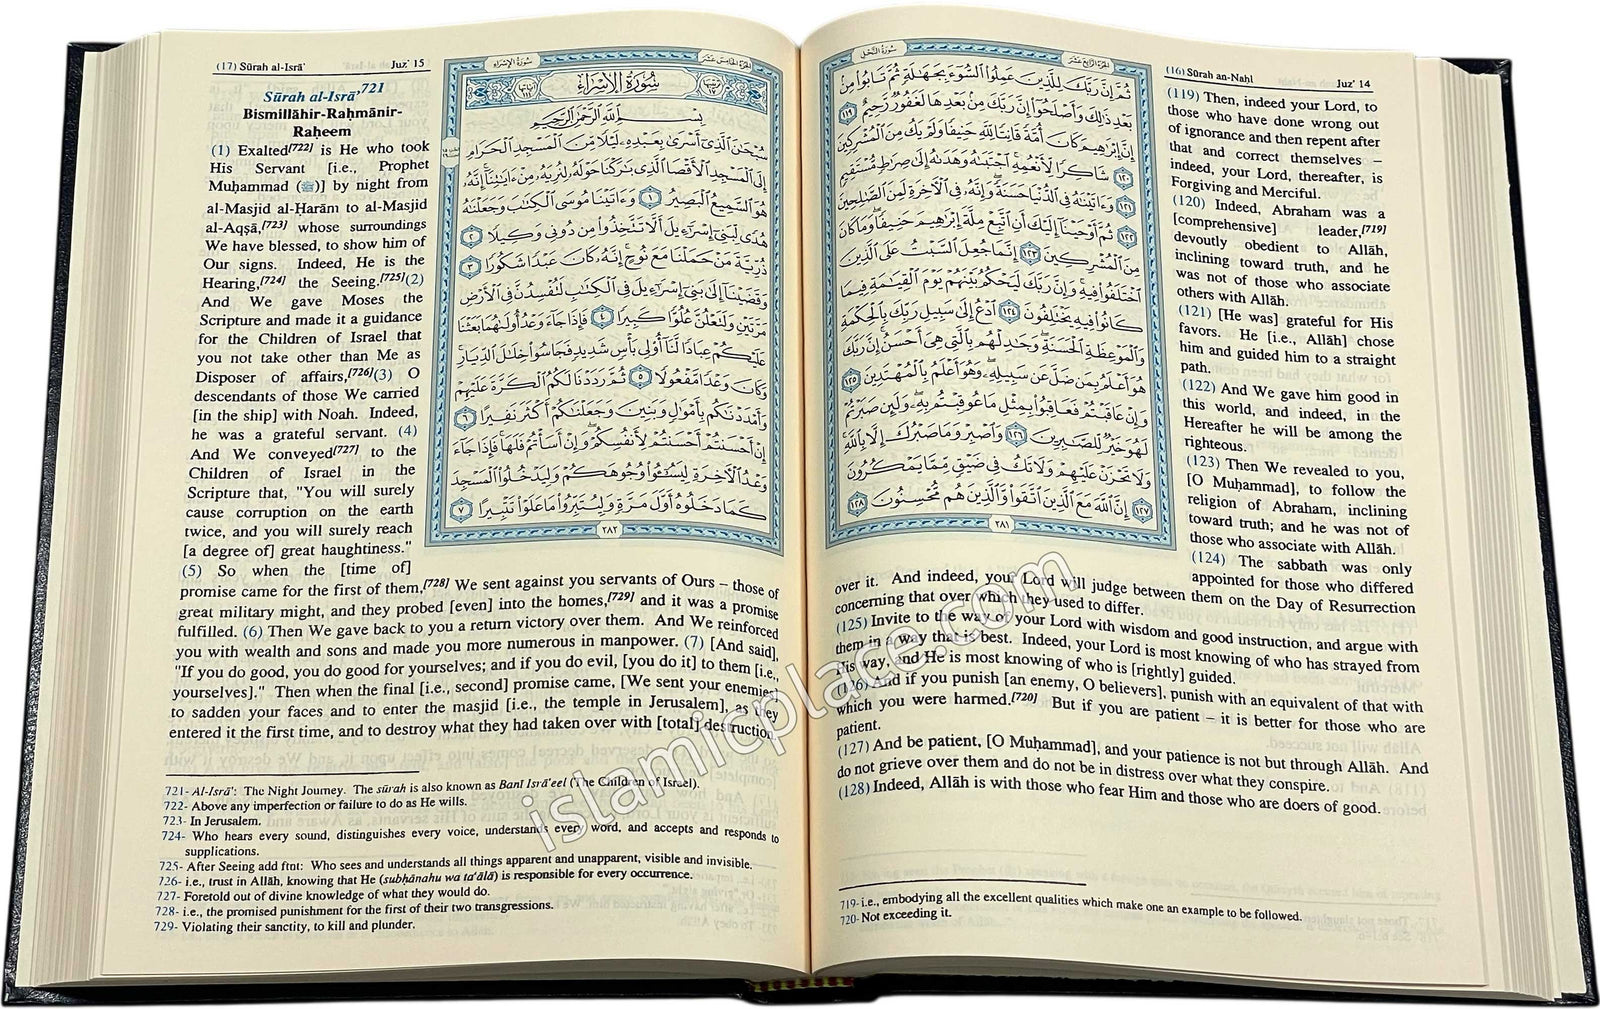 سُورَةُ النَّحْلِ
الجُزْءُ الرَّابِعَ عَشَرَ
ثُمَّ إِنَّ رَبَّكَ لِلَّذِينَ عَمِلُوا۟ ٱلسُّوٓءَ بِجَهَٰلَةٍ ثُمَّ تَابُوا۟ مِنۢ
بَعْدِ ذَٰلِكَ وَأَصْلَحُوٓا۟ إِنَّ رَبَّكَ مِنۢ بَعْدِهَا لَغَفُورٌ رَّحِيمٌ ١١٩
إِنَّ إِبْرَٰهِيمَ كَانَ أُمَّةً قَانِتًا لِّلَّهِ حَنِيفًا وَلَمْ يَكُ مِنَ ٱلْمُشْرِكِينَ
١٢٠ شَاكِرًا لِّأَنْعُمِهِ ٱجْتَبَىٰهُ وَهَدَىٰهُ إِلَىٰ صِرَٰطٍ مُّسْتَقِيمٍ
١٢١ وَءَاتَيْنَٰهُ فِى ٱلدُّنْيَا حَسَنَةً وَإِنَّهُۥ فِى ٱلْءَاخِرَةِ لَمِنَ ٱلصَّٰلِحِينَ
١٢٢ ثُمَّ أَوْحَيْنَآ إِلَيْكَ أَنِ ٱتَّبِعْ مِلَّةَ إِبْرَٰهِيمَ حَنِيفًا وَمَا كَانَ
مِنَ ٱلْمُشْرِكِينَ ١٢٣ إِنَّمَا جُعِلَ ٱلسَّبْتُ عَلَى ٱلَّذِينَ
ٱخْتَلَفُوا۟ فِيهِ وَإِنَّ رَبَّكَ لَيَحْكُمُ بَيْنَهُمْ يَوْمَ ٱلْقِيَٰمَةِ فِيمَا
كَانُوا۟ فِيهِ يَخْتَلِفُونَ ١٢٤ ٱدْعُ إِلَىٰ سَبِيلِ رَبِّكَ بِٱلْحِكْمَةِ
وَٱلْمَوْعِظَةِ ٱلْحَسَنَةِ وَجَٰدِلْهُم بِٱلَّتِى هِىَ أَحْسَنُ إِنَّ رَبَّكَ
هُوَ أَعْلَمُ بِمَن ضَلَّ عَن سَبِيلِهِۦ وَهُوَ أَعْلَمُ بِٱلْمُهْتَدِينَ ١٢٥
وَإِنْ عَاقَبْتُمْ فَعَاقِبُوا۟ بِمِثْلِ مَا عُوقِبْتُم بِهِۦ وَلَئِن صَبَرْتُمْ
لَهُوَ خَيْرٌ لِّلصَّٰبِرِينَ ١٢٦ وَٱصْبِرْ وَمَا صَبْرُكَ إِلَّا بِٱللَّهِ
وَلَا تَحْزَنْ عَلَيْهِمْ وَلَا تَكُ فِى ضَيْقٍ مِّمَّا يَمْكُرُونَ
١٢٧ إِنَّ ٱللَّهَ مَعَ ٱلَّذِينَ ٱتَّقَوا۟ وَّٱلَّذِينَ هُم مُّحْسِنُونَ ١٢٨
٢٨١
(16) Sūrah an-Naḥl
Juz' 14
(119) Then, indeed your Lord, to
those who have done wrong out
of ignorance and then repent after
that and correct themselves –
indeed, your Lord, thereafter, is
Forgiving and Merciful.
(120) Indeed, Abraham was a
[comprehensive] leader,[719]
devoutly obedient to Allāh,
inclining toward truth, and he
was not of those who associate
others with Allāh.
(121) [He was] grateful for His
favors. He [i.e., Allāh] chose
him and guided him to a straight
path.
(122) And We gave him good in
this world, and indeed, in the
Hereafter he will be among the
righteous.
(123) Then We revealed to you,
[O Muḥammad], to follow the
religion of Abraham, inclining
toward truth; and he was not of
those who associate with Allāh.
(124) The sabbath was only
appointed for those who differed
over it. And indeed, your Lord will judge between them on the Day of Resurrection
concerning that over which they used to differ.
(125) Invite to the way of your Lord with wisdom and good instruction, and argue with
them in a way that is best. Indeed, your Lord is most knowing of who has strayed from
His way, and He is most knowing of who is [rightly] guided.
(126) And if you punish [an enemy, O believers], punish with an equivalent of that with
which you were harmed.[720] But if you are patient – it is better for those who are
patient.
(127) And be patient, [O Muḥammad], and your patience is not but through Allāh. And
do not grieve over them and do not be in distress over what they conspire.
(128) Indeed, Allāh is with those who fear Him and those who are doers of good.
719- i.e., embodying all the excellent qualities which make one an example to be followed.
720- Not exceeding it.
(17) Sūrah al-Isrā'
Juz' 15
سُورَةُ الإِسْرَاءِ
الجُزْءُ الخَامِسَ عَشَرَ
سُورَةُ الإِسْرَاءِ
بِسْمِ ٱللَّهِ ٱلرَّحْمَٰنِ ٱلرَّحِيمِ
سُبْحَٰنَ ٱلَّذِىٓ أَسْرَىٰ بِعَبْدِهِۦ لَيْلًا مِّنَ ٱلْمَسْجِدِ ٱلْحَرَامِ
إِلَى ٱلْمَسْجِدِ ٱلْأَقْصَا ٱلَّذِى بَٰرَكْنَا حَوْلَهُۥ لِنُرِيَهُۥ مِنْ ءَايَٰتِنَآ إِنَّهُۥ
هُوَ ٱلسَّمِيعُ ٱلْبَصِيرُ ١ وَءَاتَيْنَا مُوسَى ٱلْكِتَٰبَ وَجَعَلْنَٰهُ
هُدًى لِّبَنِىٓ إِسْرَٰٓءِيلَ أَلَّا تَتَّخِذُوا۟ مِن دُونِى وَكِيلًا ٢
ذُرِّيَّةَ مَنْ حَمَلْنَا مَعَ نُوحٍ إِنَّهُۥ كَانَ عَبْدًا شَكُورًا ٣
وَقَضَيْنَآ إِلَىٰ بَنِىٓ إِسْرَٰٓءِيلَ فِى ٱلْكِتَٰبِ لَتُفْسِدُنَّ فِى ٱلْأَرْضِ
مَرَّتَيْنِ وَلَتَعْلُنَّ عُلُوًّا كَبِيرًا ٤ فَإِذَا جَآءَ وَعْدُ أُولَىٰهُمَا بَعَثْنَا
عَلَيْكُمْ عِبَادًا لَّنَآ أُو۟لِى بَأْسٍ شَدِيدٍ فَجَاسُوا۟ خِلَٰلَ ٱلدِّيَارِ
وَكَانَ وَعْدًا مَّفْعُولًا ٥ ثُمَّ رَدَدْنَا لَكُمُ ٱلْكَرَّةَ عَلَيْهِمْ
وَأَمْدَدْنَٰكُم بِأَمْوَٰلٍ وَبَنِينَ وَجَعَلْنَٰكُمْ أَكْثَرَ نَفِيرًا ٦
إِنْ أَحْسَنتُمْ أَحْسَنتُمْ لِأَنفُسِكُمْ وَإِنْ أَسَأْتُمْ فَلَهَا فَإِذَا جَآءَ
وَعْدُ ٱلْءَاخِرَةِ لِيَسُۥٓـُٔوا۟ وُجُوهَكُمْ وَلِيَدْخُلُوا۟ ٱلْمَسْجِدَ
كَمَا دَخَلُوهُ أَوَّلَ مَرَّةٍ وَلِيُتَبِّرُوا۟ مَا عَلَوْا۟ تَتْبِيرًا ٧
٢٨٢
Sūrah al-Isrā'721
Bismillāhir-Raḥmānir-
Raḥeem
(1) Exalted[722] is He who took
His Servant [i.e., Prophet
Muḥammad (ﷺ)] by night from
al-Masjid al-Ḥarām to al-Masjid
al-Aqṣā,[723] whose surroundings
We have blessed, to show him of
Our signs. Indeed, He is the
Hearing,[724] the Seeing.[725](2)
And We gave Moses the
Scripture and made it a guidance
for the Children of Israel that
you not take other than Me as
Disposer of affairs,[726](3) O
descendants of those We carried
[in the ship] with Noah. Indeed,
he was a grateful servant. (4)
And We conveyed[727] to the
Children of Israel in the
Scripture that, "You will surely
cause corruption on the earth
twice, and you will surely reach
[a degree of] great haughtiness."
(5) So when the [time of]
promise came for the first of them,[728] We sent against you servants of Ours – those of
great military might, and they probed [even] into the homes,[729] and it was a promise
fulfilled. (6) Then We gave back to you a return victory over them. And We reinforced
you with wealth and sons and made you more numerous in manpower. (7) [And said],
"If you do good, you do good for yourselves; and if you do evil, [you do it] to them [i.e.,
yourselves]." Then when the final [i.e., second] promise came, [We sent your enemies]
to sadden your faces and to enter the masjid [i.e., the temple in Jerusalem], as they
entered it the first time, and to destroy what they had taken over with [total] destruction.
721- Al-Isrā': The Night Journey. The sūrah is also known as Banī Isrā'eel (The Children of Israel).
722- Above any imperfection or failure to do as He wills.
723- In Jerusalem.
724- Who hears every sound, distinguishes every voice, understands every word, and accepts and responds to
supplications.
725- After Seeing add ftnt: Who sees and understands all things apparent and unapparent, visible and invisible.
726- i.e., trust in Allāh, knowing that He (subḥānahu wa ta'ālā) is responsible for every occurrence.
727- Foretold out of divine knowledge of what they would do.
728- i.e., the promised punishment for the first of their two transgressions.
729- Violating their sanctity, to kill and plunder.
islamicplace.com